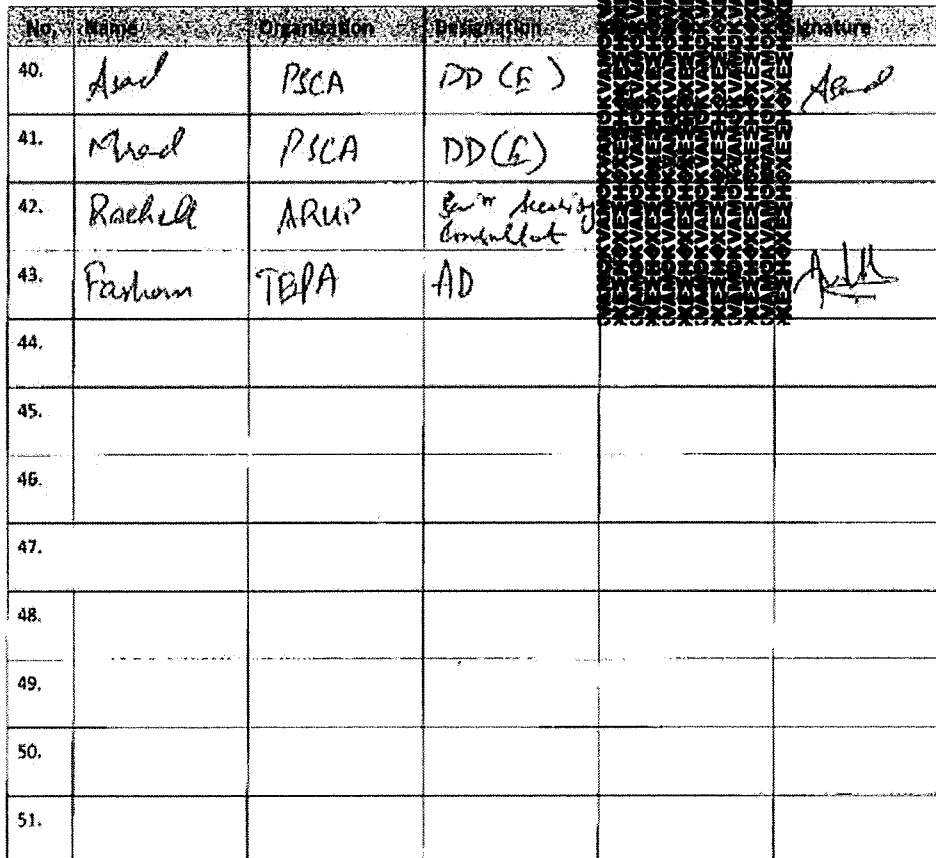 No. Name Organization Designation Signature
40. Asad PSCA DD (E)
41. PSCA DD (E)
42. Rachell ARUP Security
Consultant
43. Farhan TEPA AD
44.
45.
46.
47.
48.
49.
50.
51.